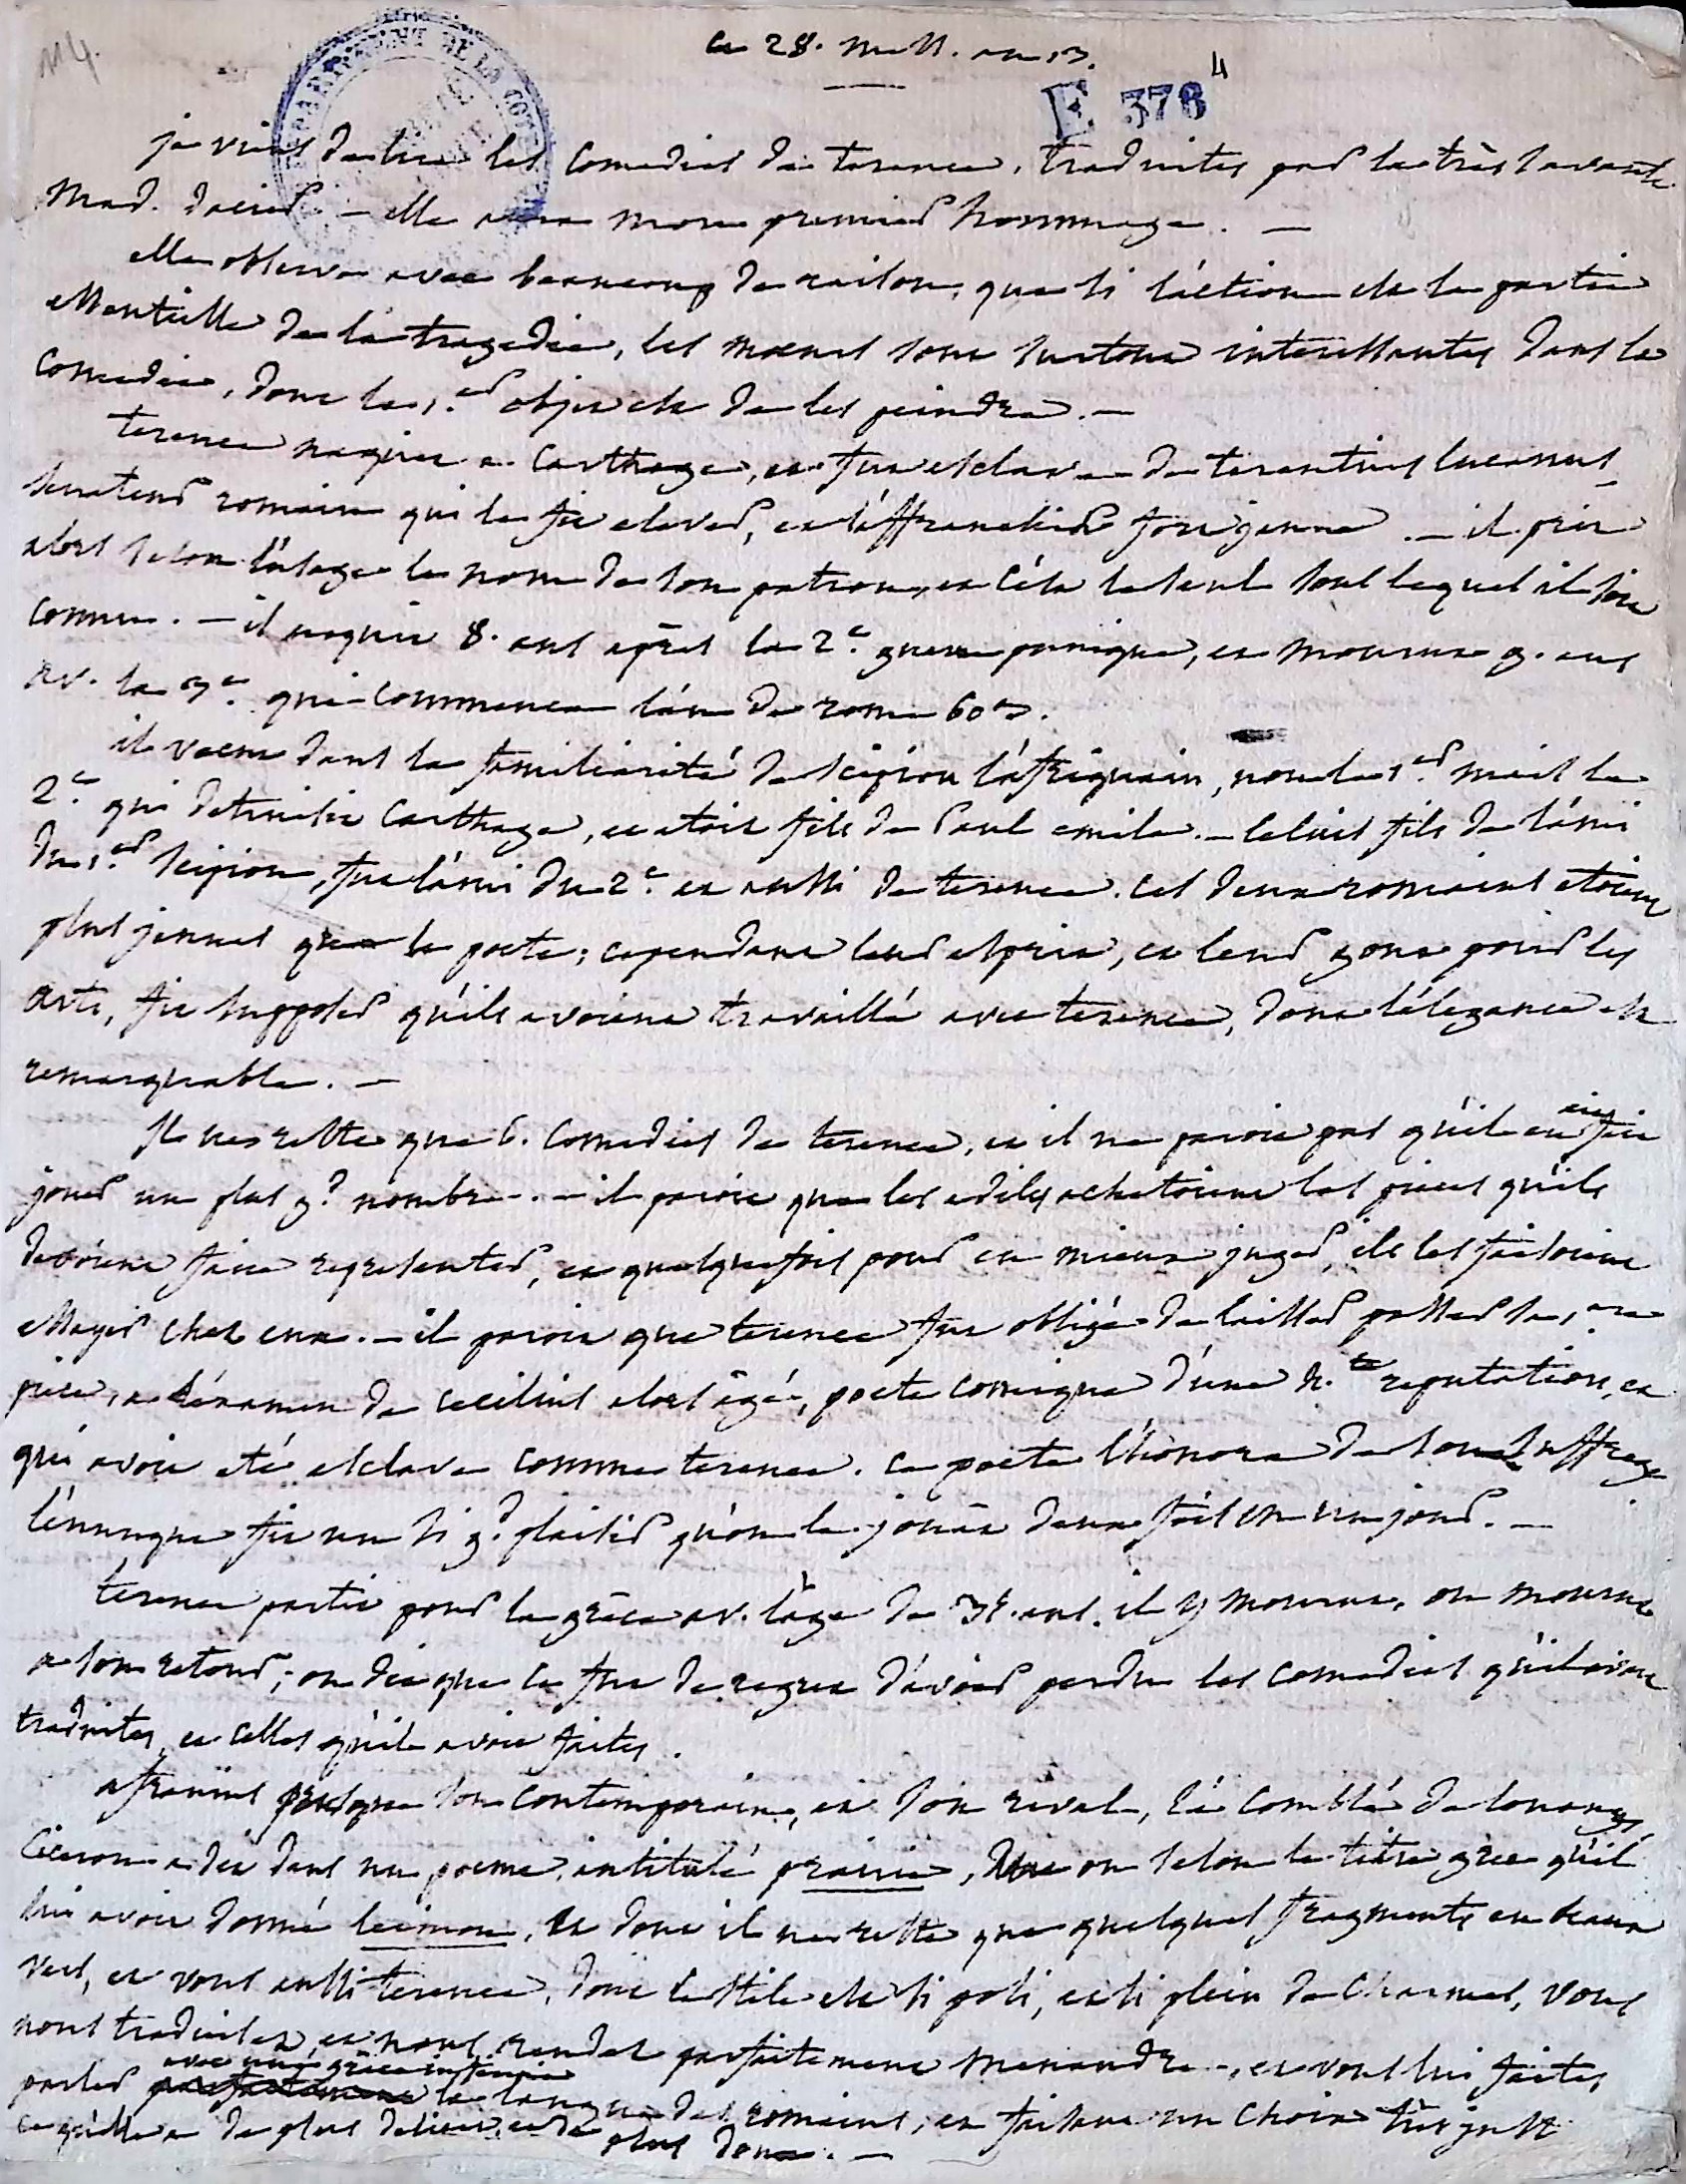 114.
ce 28. mess. an 13.
DEPARTEMENT DE LA COTE
E 378 4
je viens de lire les comedies de terence, traduites par la très savante
Mad. dacier. – elle aura mon premier hommage. –
elle observe avec beaucoup de raison, que si l'action est la partie
essentielle de la tragedie, les mœurs sont surtout interessantes dans la
comedie, dont le 1.er objet est de les peindre. –
terence naquit a Carthage, et fut esclave de terentius lucanus
senateur romain qui le fit elever, et l'affranchit fort jeune. – il prit
alors selon l'usage le nom de son patron, et c'est le seul sous lequel il soit
connu. – il naquit 8. ans après la 2.e guerre punique, et mourut 9. ans
av. la 3.e qui commença l'an de rome 603.
il vecut dans la familiarité de scipion l'affriquain, non le 1.er mais le
2.e qui detruisit Carthage, et etoit fils de Paul emile. – lelius fils de l'ami
du 1.er scipion, fut l'ami du 2.e et aussi de terence. ces deux romains etoient
plus jeunes que le poete; cependant leur esprit, et leur gout pour les
arts, fit supposer qu'ils avoient travaillé avec terence, dont l'élegance est
remarquable. –
Il ne reste que 6. comedies de terence, et il ne paroit pas qu'il en ait fait
jouer un plus gd nombre. – il paroit que les ediles achetoient les pieces qu'ils
devoient faire representer, et quelquefois pour en mieux juger, ils les faisoient
essayer chez eux. – il paroit que terence fut obligé de laisser passer sa 1.ere
piece, a l'examen de cecilius alors âgé, poete comique d'une h.te reputation, et
qui avoit eté esclave comme terence. ce poete l'honora de son suffrage
l'eunuque fit un si gd plaisir qu'on le joüa deux fois en un jour. –
terence partit pour la grèce av. l'âge de 35. ans. il y mourut, ou mourut
a son retour; on dit que ce fut de regret d'avoir perdu les comedies qu'il avoit
traduites, et celles qu'il avoit faites.
afranius presque son contemporain, et son rival, l'a comblé de louanges,
Ciceron a dit dans un poeme, intitulé prairie, ou selon le titre grec qu'il
lui avoit donné leimon, et dont il ne reste que quelques fragments en beaux
vers, et vous aussi terence, dont le stile est si poli, et si plein de charmes, vous
nous traduisez, et nous rendez parfaitement Menandre, et vous lui faites
parler parfaitement avec une grâce infinie la langue des romains, en faisant un choix très juste
ce qu'elle a de plus delicat, et de plus doux. –